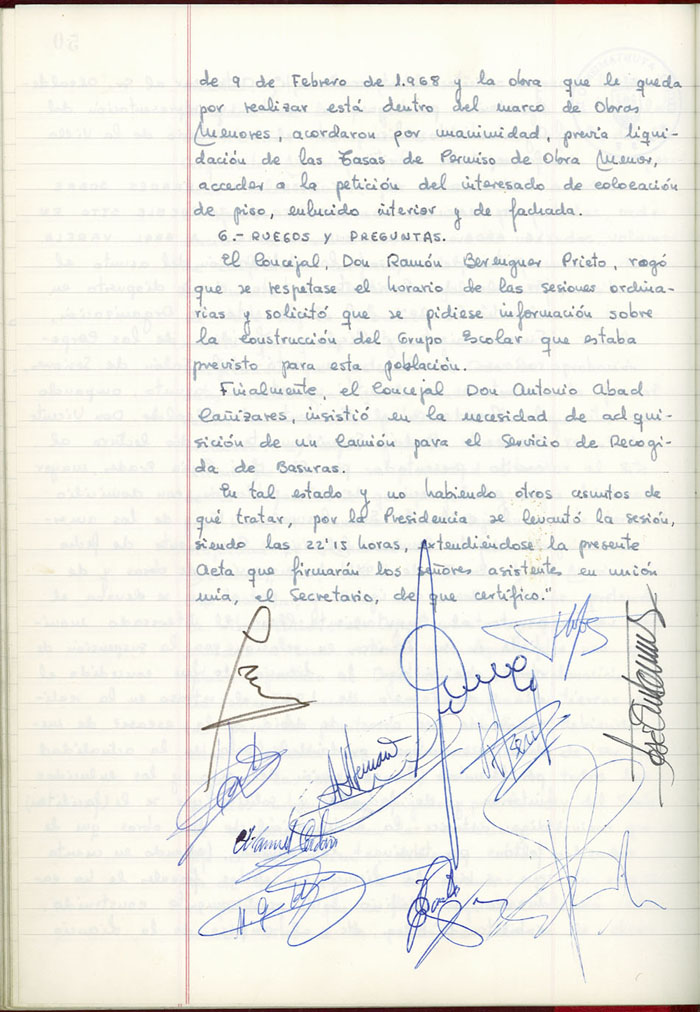 de 9 de Febrero de 1.968 y la obra que le queda
por realizar está dentro del marco de Obras
Menores, acordaron por unanimidad, previa liqui-
dación de las Tasas de Permiso de Obra Menor,
acceder a la petición del interesado de colocación
de piso, enlucido interior y de fachada.
6.- RUEGOS Y PREGUNTAS.
El Concejal, Don Ramón Berenguer Prieto, rogó
que se respetase el horario de las sesiones ordina-
rias y solicitó que se pidiese información sobre
la construcción del Grupo Escolar que estaba
previsto para esta población.
Finalmente, el Concejal Don Antonio Abad
Cañizares, insistió en la necesidad de adqui-
sición de un Camión para el Servicio de Recogi-
da de Basuras.
En tal estado y no habiendo otros asuntos de
qué tratar, por la Presidencia se levantó la sesión,
siendo las 22'15 horas, extendiéndose la presente
Acta que firmarán los señores asistentes en unión
mía, el Secretario, de que certifico."